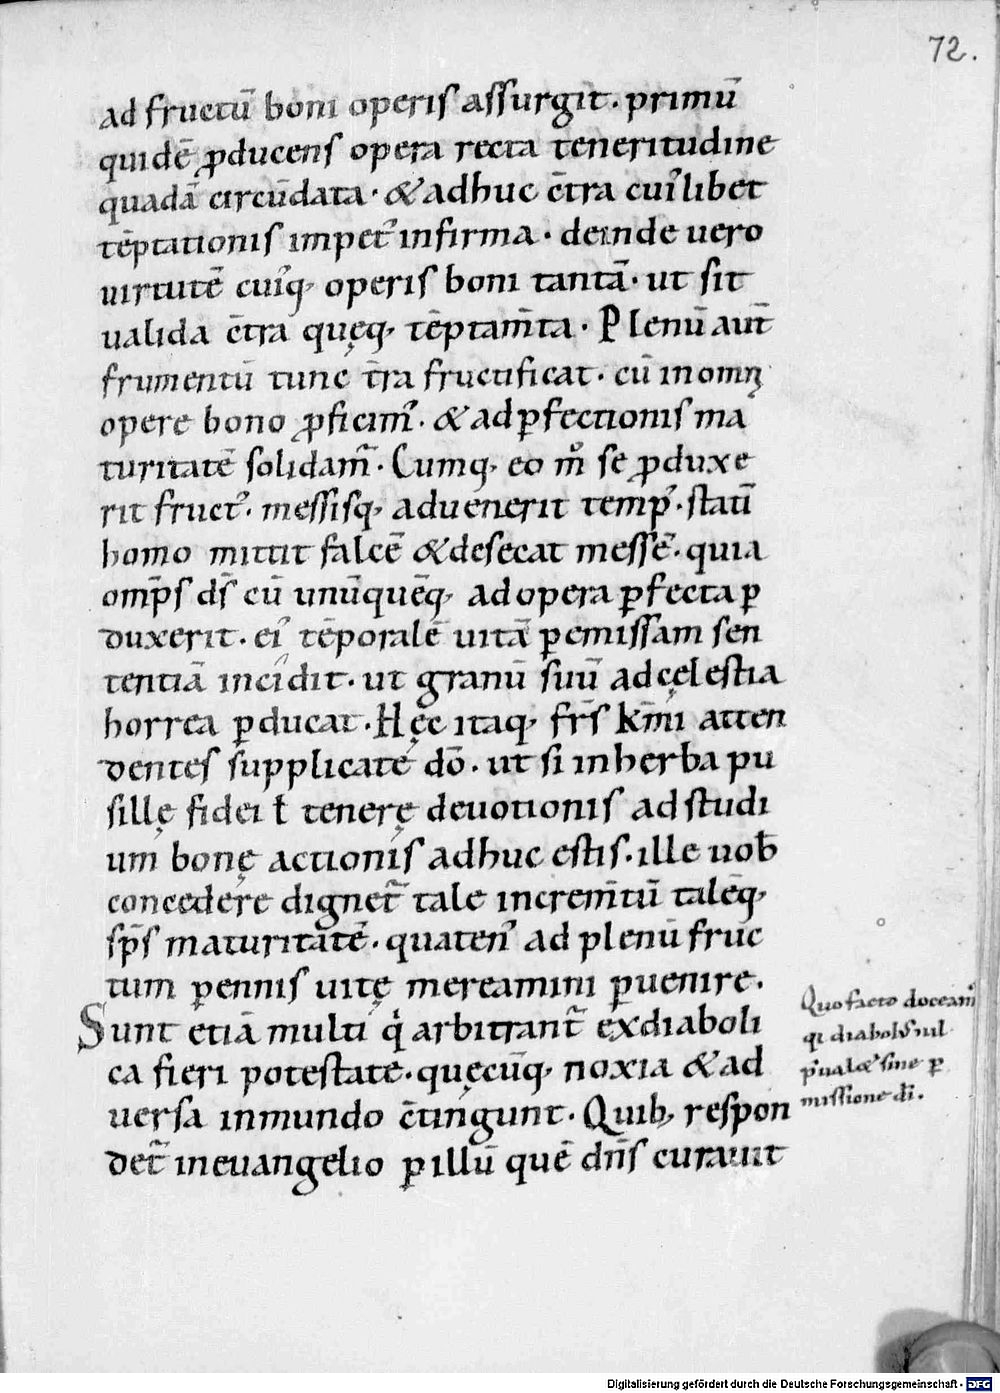 72.
ad fructū boni operis assurgit. primū
quidē ꝓducens opera recta teneritudine
quadā circūdata. & adhuc c̄tra cuiꝰlibet
tēptationis impetꝰ infirma. deinde uero
uirtutē cuiꝰq; operis boni tantā. ut sit
ualida c̄tra quęq; tēptam̄ta. Plenū aut̄
frumentū tunc t̄ra fructificat. cū in omī
opere bono ꝓficimꝰ. & ad ꝑfectionis ma
turitatē solidam̄. Cumq; eo m̊ se ꝓduxe
rit fructꝰ. messisq; aduenerit tempꝰ. statī
homo mittit falcē & desecat messē. quia
omp̄s ds̄ cū unūquēq; ad opera ꝑfecta ꝑ
duxerit. eiꝰ tēporalē uitā ꝑ emissam sen
tentiā incidit. ut granū suū ad cęlestia
horrea ꝑducat. Hęc itaq; fr̄s km̄i atten
dentes supplicate dō. ut si in herba pu
sillę fidei ł tenerę deuotionis ad studi
um bonę actionis adhuc estis. ille uob̄
concedere dignet̄ tale increm̄tū talēq;
sp̄s maturitatē. quatenꝰ ad plenū fruc
tum ꝑennis uitę mereamini ꝑuenire.
Sunt etiā multi qi arbitrant̄ ex diaboli
ca fieri potestate. quęcūq; noxia & ad
uersa in mundo c̄tingunt. Quib; respon
det̄ in euangelio ꝑ illū quē dn̄s curauit
Quo facto doceamꝰ
qi diabolꝰ nil
p̄ualet sine ꝑ
missione di̅.
Digitalisierung gefördert durch die Deutsche Forschungsgemeinschaft - DFG